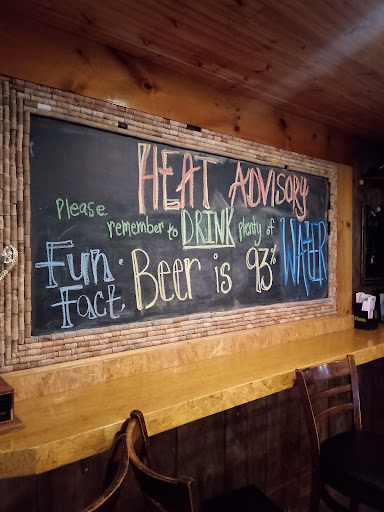 HEAT ADVISORY
Please remember to DRINK plenty of WATER
Fun Fact: Beer is 93%